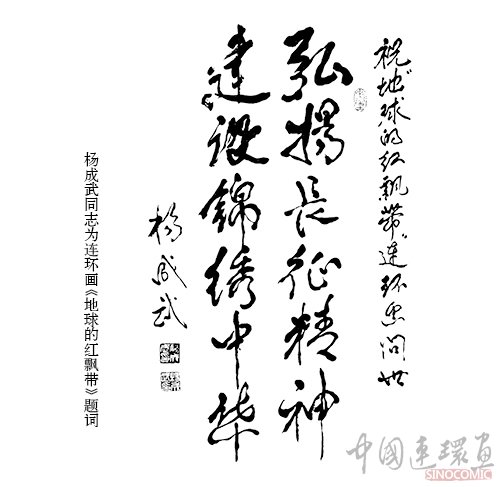 祝“地球的红飘带”连环画问世
弘揚長征精神
建设锦绣中华
杨成武
杨成武同志为连环画《地球的红飘带》题词
中國連環畫
SINOCOMIC